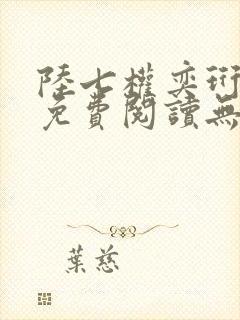 陸七權奕珩
免費閱讀無
葉慈